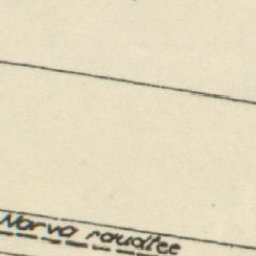 Narva raudtee